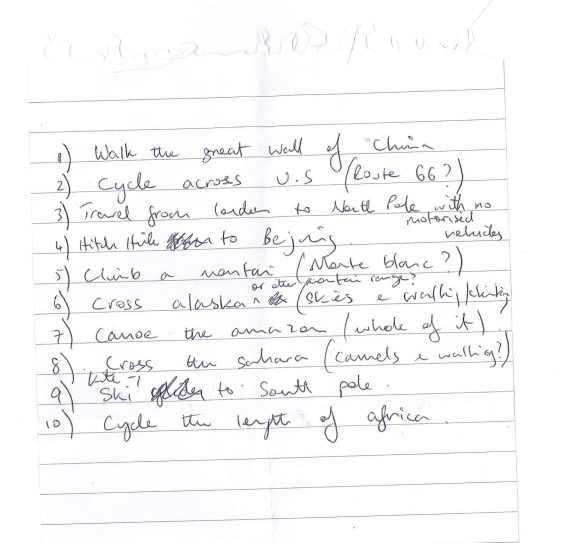 1) Walk the great wall of China
2) Cycle across U.S (Route 66?)
3) Travel from london to North Pole with no
motorised
vehicles
4) Hitch Hike to Bejing.
5) Climb a montai (Monte blanc?)
or other montai range?
6) Cross alaska ^ (skies & walking/climbing
7) Canoe the amazon (whole of it).
8) Cross the sahara (camels & walkig?)
kite -
9) Ski to South pole.
10) Cycle the length of africa.